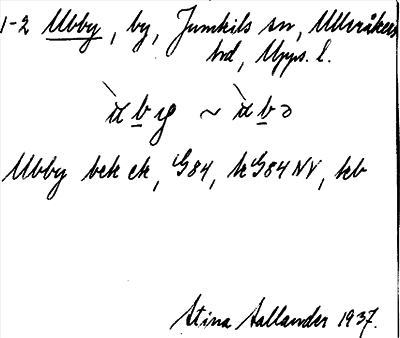 1-2 Ubby, by, Jumkils sn, Ulleråkers
hd, Upps. l.
Ubby bek ek, G84, k G84 NV, kb
Stina Hallander 1937.